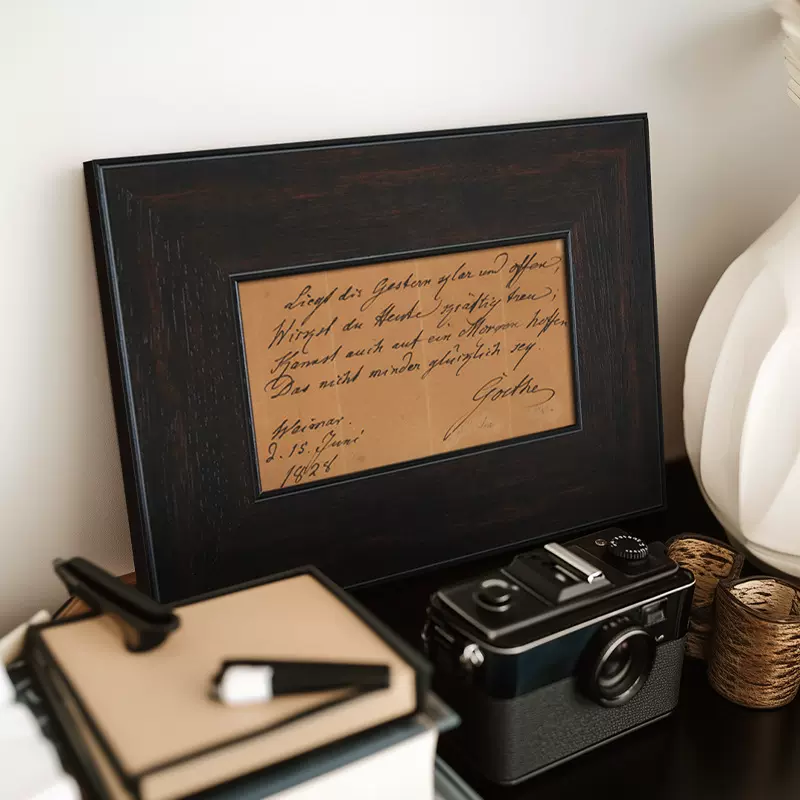 Liegt dir Gestern klar und offen,
Wirckst du Heute kräftig treu;
Kannst auch auf ein Morgen hoffen
Das nicht minder glücklich sey.
Goethe
Weimar.
d. 15. Juni
1828